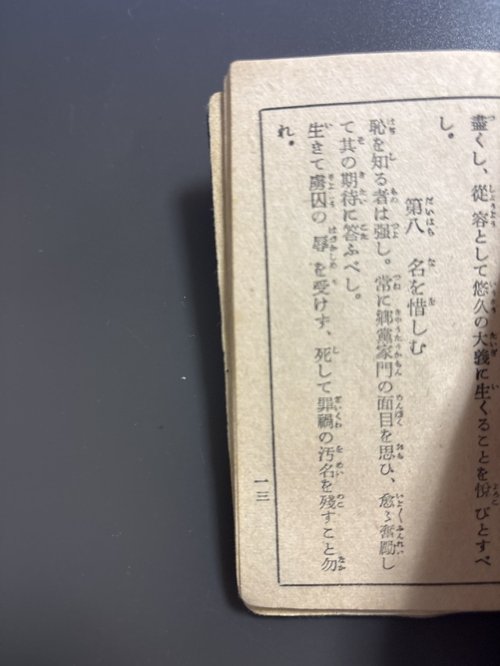 盡くし、從容として悠久の大義に生くることを悅びとすべ
し。
第八　名を惜しむ
恥を知る者は强し。常に鄕黨家門の面目を思ひ、愈〻奮勵し
て其の期待に答ふべし。
生きて虜囚の辱を受けず、死して罪禍の汚名を殘すこと勿
れ。
一三